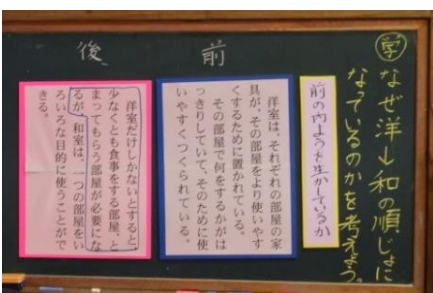 学
なぜ洋→和の順じょに
なっているのかを考えよう。
前の内ようを生かしているか
前
洋室は、それぞれの部屋の家
具が、その部屋をより使いやす
くするために置かれている。
その部屋で何をするかがは
っきりしていて、そのために使
いやすくつくられている。
後
洋室だけしかないとすると、
少なくとも食事をする部屋、と
まってもらう部屋が必要にな
るが、和室は、一つの部屋をい
ろいろな目的に使うことがで
きる。